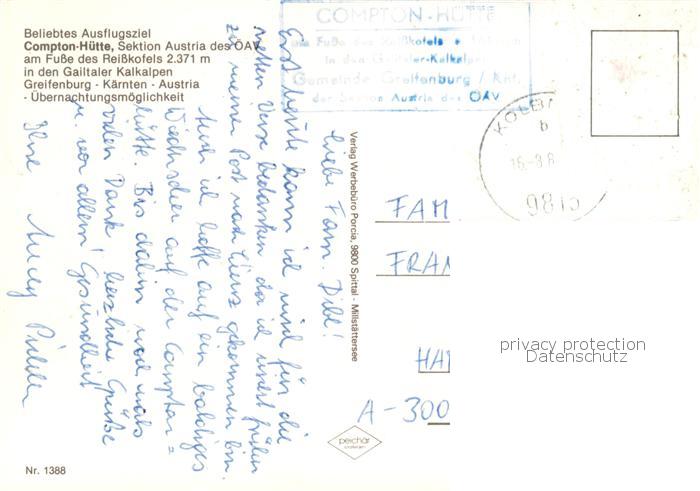 Beliebtes Ausflugsziel
Compton-Hütte, Sektion Austria des ÖAV
am Fuße des Reißkofels 2.371 m
in den Gailtaler Kalkalpen
Greifenburg - Kärnten - Austria
- Übernachtungsmöglichkeit
COMPTON-HÜTTE
am Fuße des Reißkofels
in den Gailtaler-Kalkalpen
Gemeinde Greifenburg / Ktn.
der Sektion Austria des ÖAV
Liebe Fam.
Erst heute kann ich mich für die
netten Verse bedanken da ich nicht früher
zu meiner Post nach Lienz gekommen bin.
Auch ich hoffe auf ein baldiges
Wiedersehen auf der Compton=
hütte. Bis dahin noch mals
vielen Dank! herzliche Grüße
u. vor allem! Gesundheit!
Ihre
Verlag Werbebüro Porcia, 9800 Spittal - Millstättersee
9815
FAM
FRAN
HA
A-300
privacy protection
Datenschutz
peichär
Nr. 1388